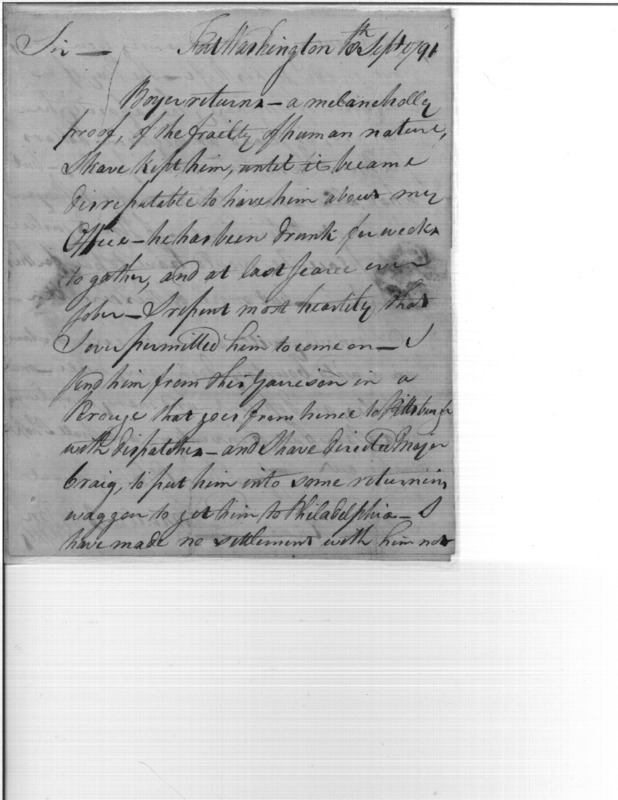 Sir — Fort Washington 8th Sept 1791
Boyer returns — a melancholly
proof, of the frailty of human nature,
I have kept him, until it became
disreputable to have him about my
Office — he has been drunk for weeks
to gather, and at last scarce ever
sober — I repent most heartily that
I ever permitted him to come on — I
send him from this Garrison in a
Perouge that goes from hence to Pittsburgh
with dispatches — and I have directed Major
Craig, to put him into some returning
waggon to get him to Philadelphia — I
have made no settlement with him nor